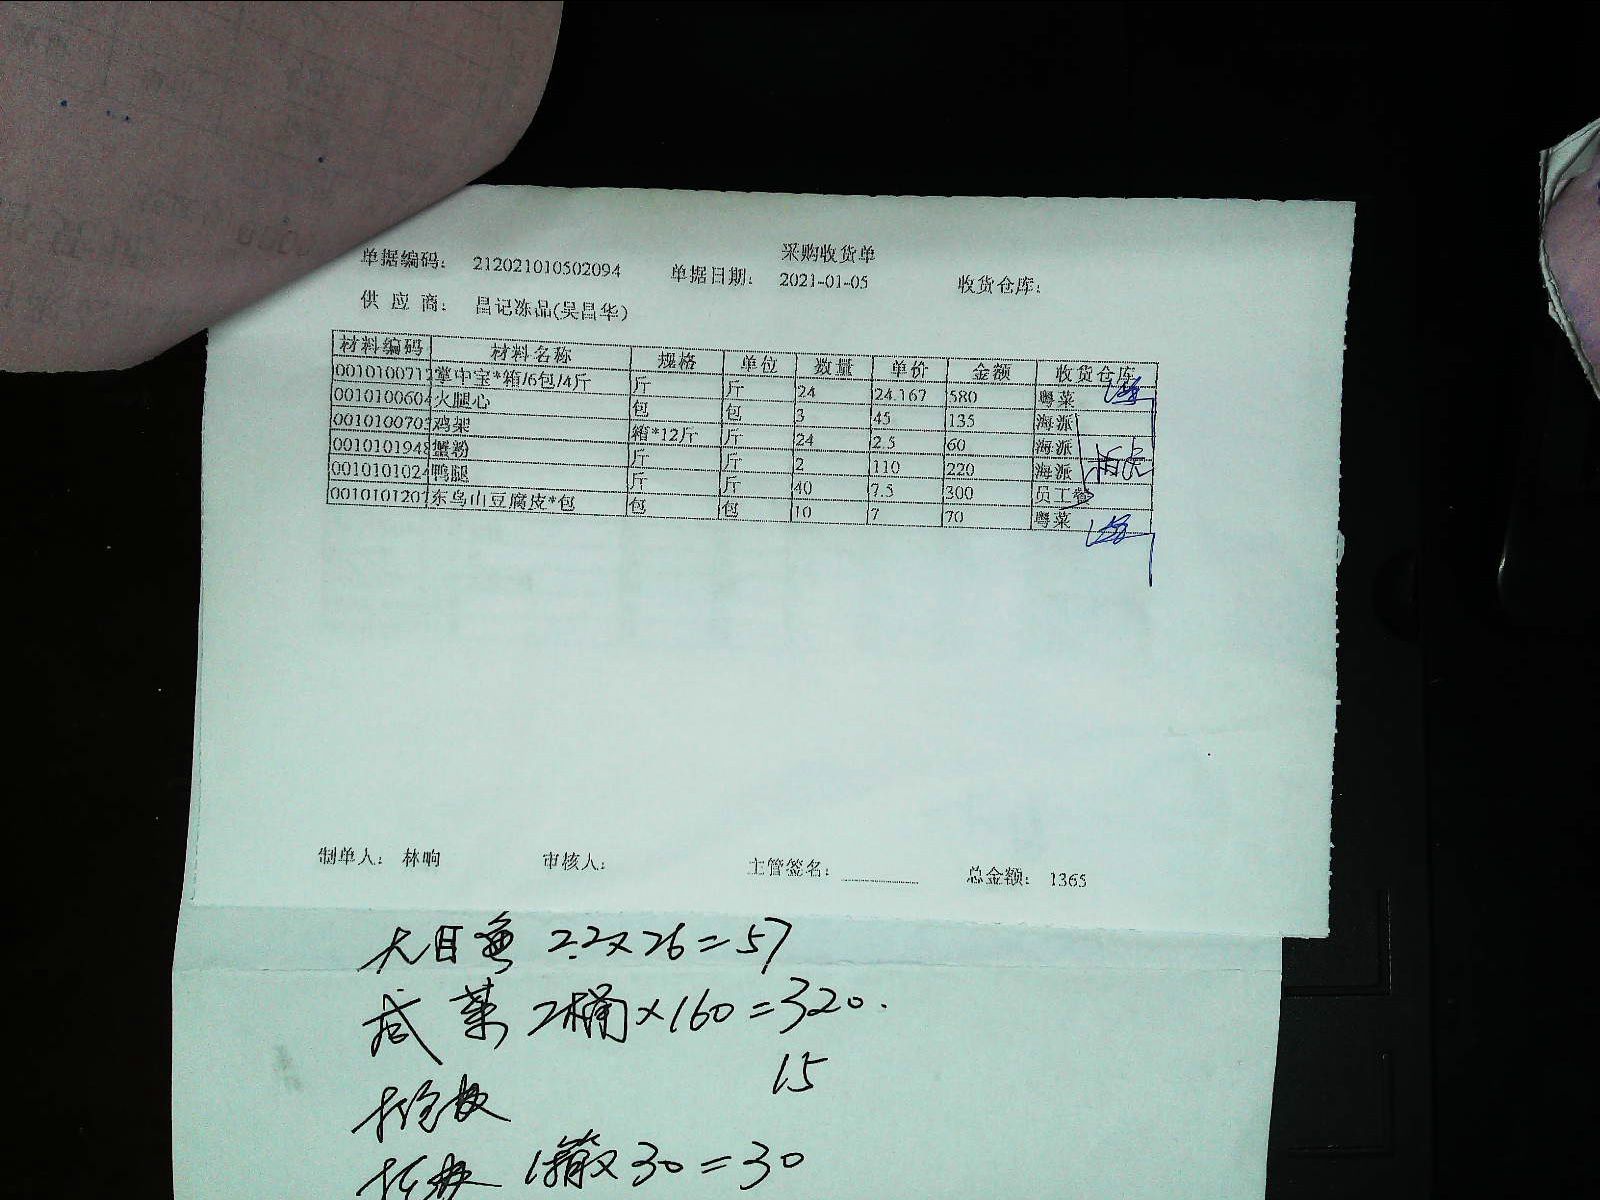 采购收货单
单据编码: 212021010502094 单据日期: 2021-01-05 收货仓库:
供 应 商: 昌记冻品(吴昌华)
材料编码 材料名称 规格 单位 数量 单价 金额 收货仓库
001010071 掌中宝*箱/6包/4斤 斤 斤 24 24.167 580 粤菜
001010060 火腿心 包 包 3 45 135 海派
001010070 鸡架 箱*12斤 斤 24 2.5 60 海派
001010194 蟹粉 斤 斤 2 110 220 海派
001010102 鸭腿 斤 斤 40 7.5 300 员工餐
001010120 东乌山豆腐皮*包 包 包 10 7 70 粤菜
制单人: 林响 审核人: 主管签名: 总金额: 1365
大目鱼 2.2×26=57
咸菜 2桶×160=320.
15
1箱×30=30